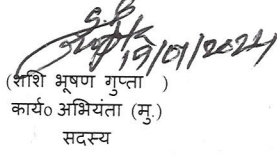 19/01/2024
(शशि भूषण गुप्ता )
कार्य० अभियंता (मु.)
सदस्य